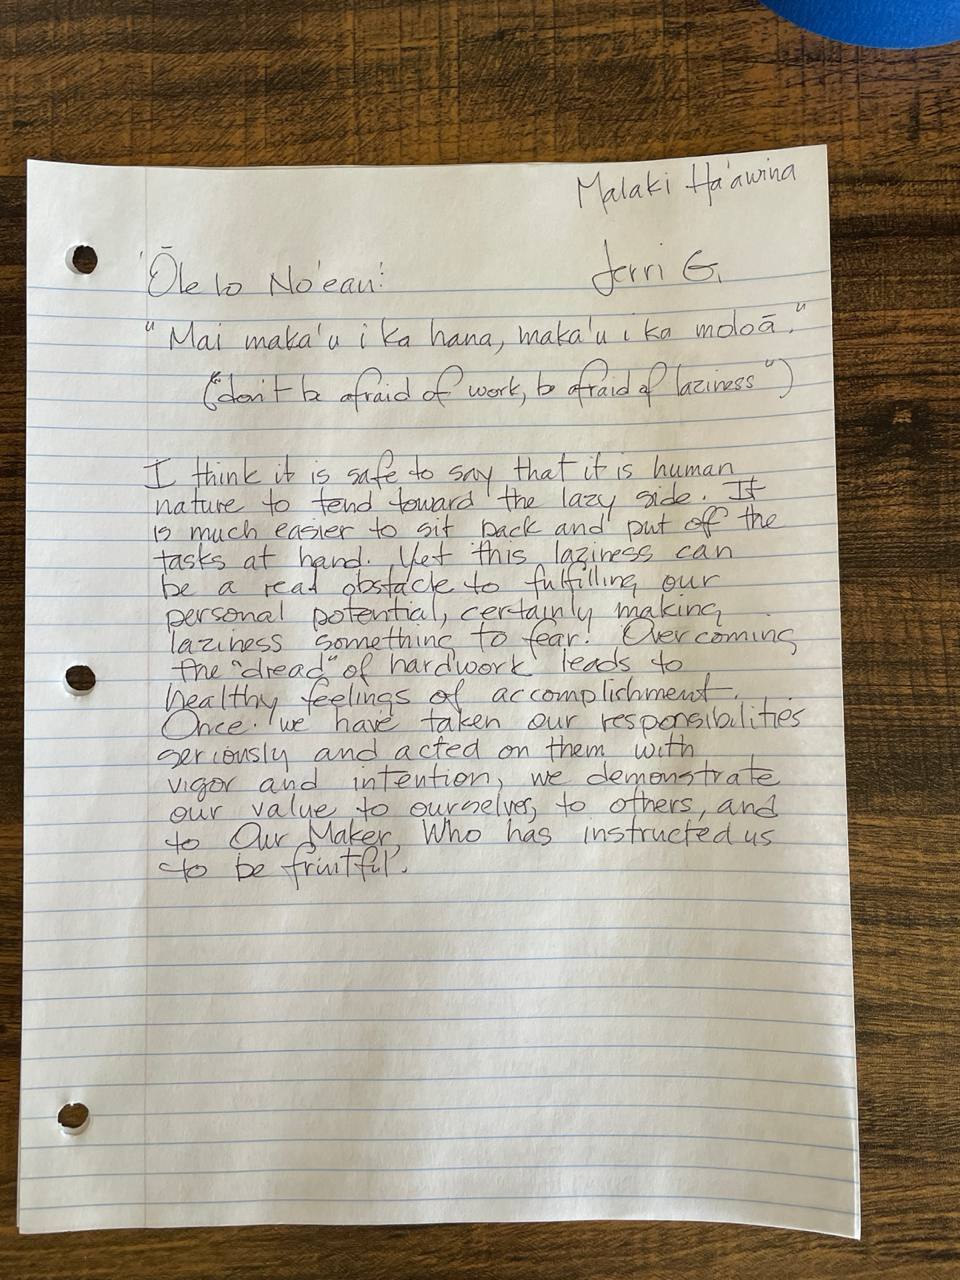 Malaki Ha'awina
'Ōlelo No'eau:
Jerri G.
"Mai maka'u i ka hana, maka'u i ka moloā."
("don't be afraid of work, be afraid of laziness")
I think it is safe to say that it is human
nature to tend toward the lazy side. It
is much easier to sit back and put of the
tasks at hand. Yet this laziness can
be a real obstacle to fulfilling our
personal potential, certainly making
laziness something to fear! Overcoming
the "dread" of hardwork leads to
healthy feelings of accomplishment.
Once we have taken our responsibilities
seriously and acted on them with
vigor and intention, we demonstrate
our value to ourselves, to others, and
to Our Maker, Who has instructed us
to be fruitful.